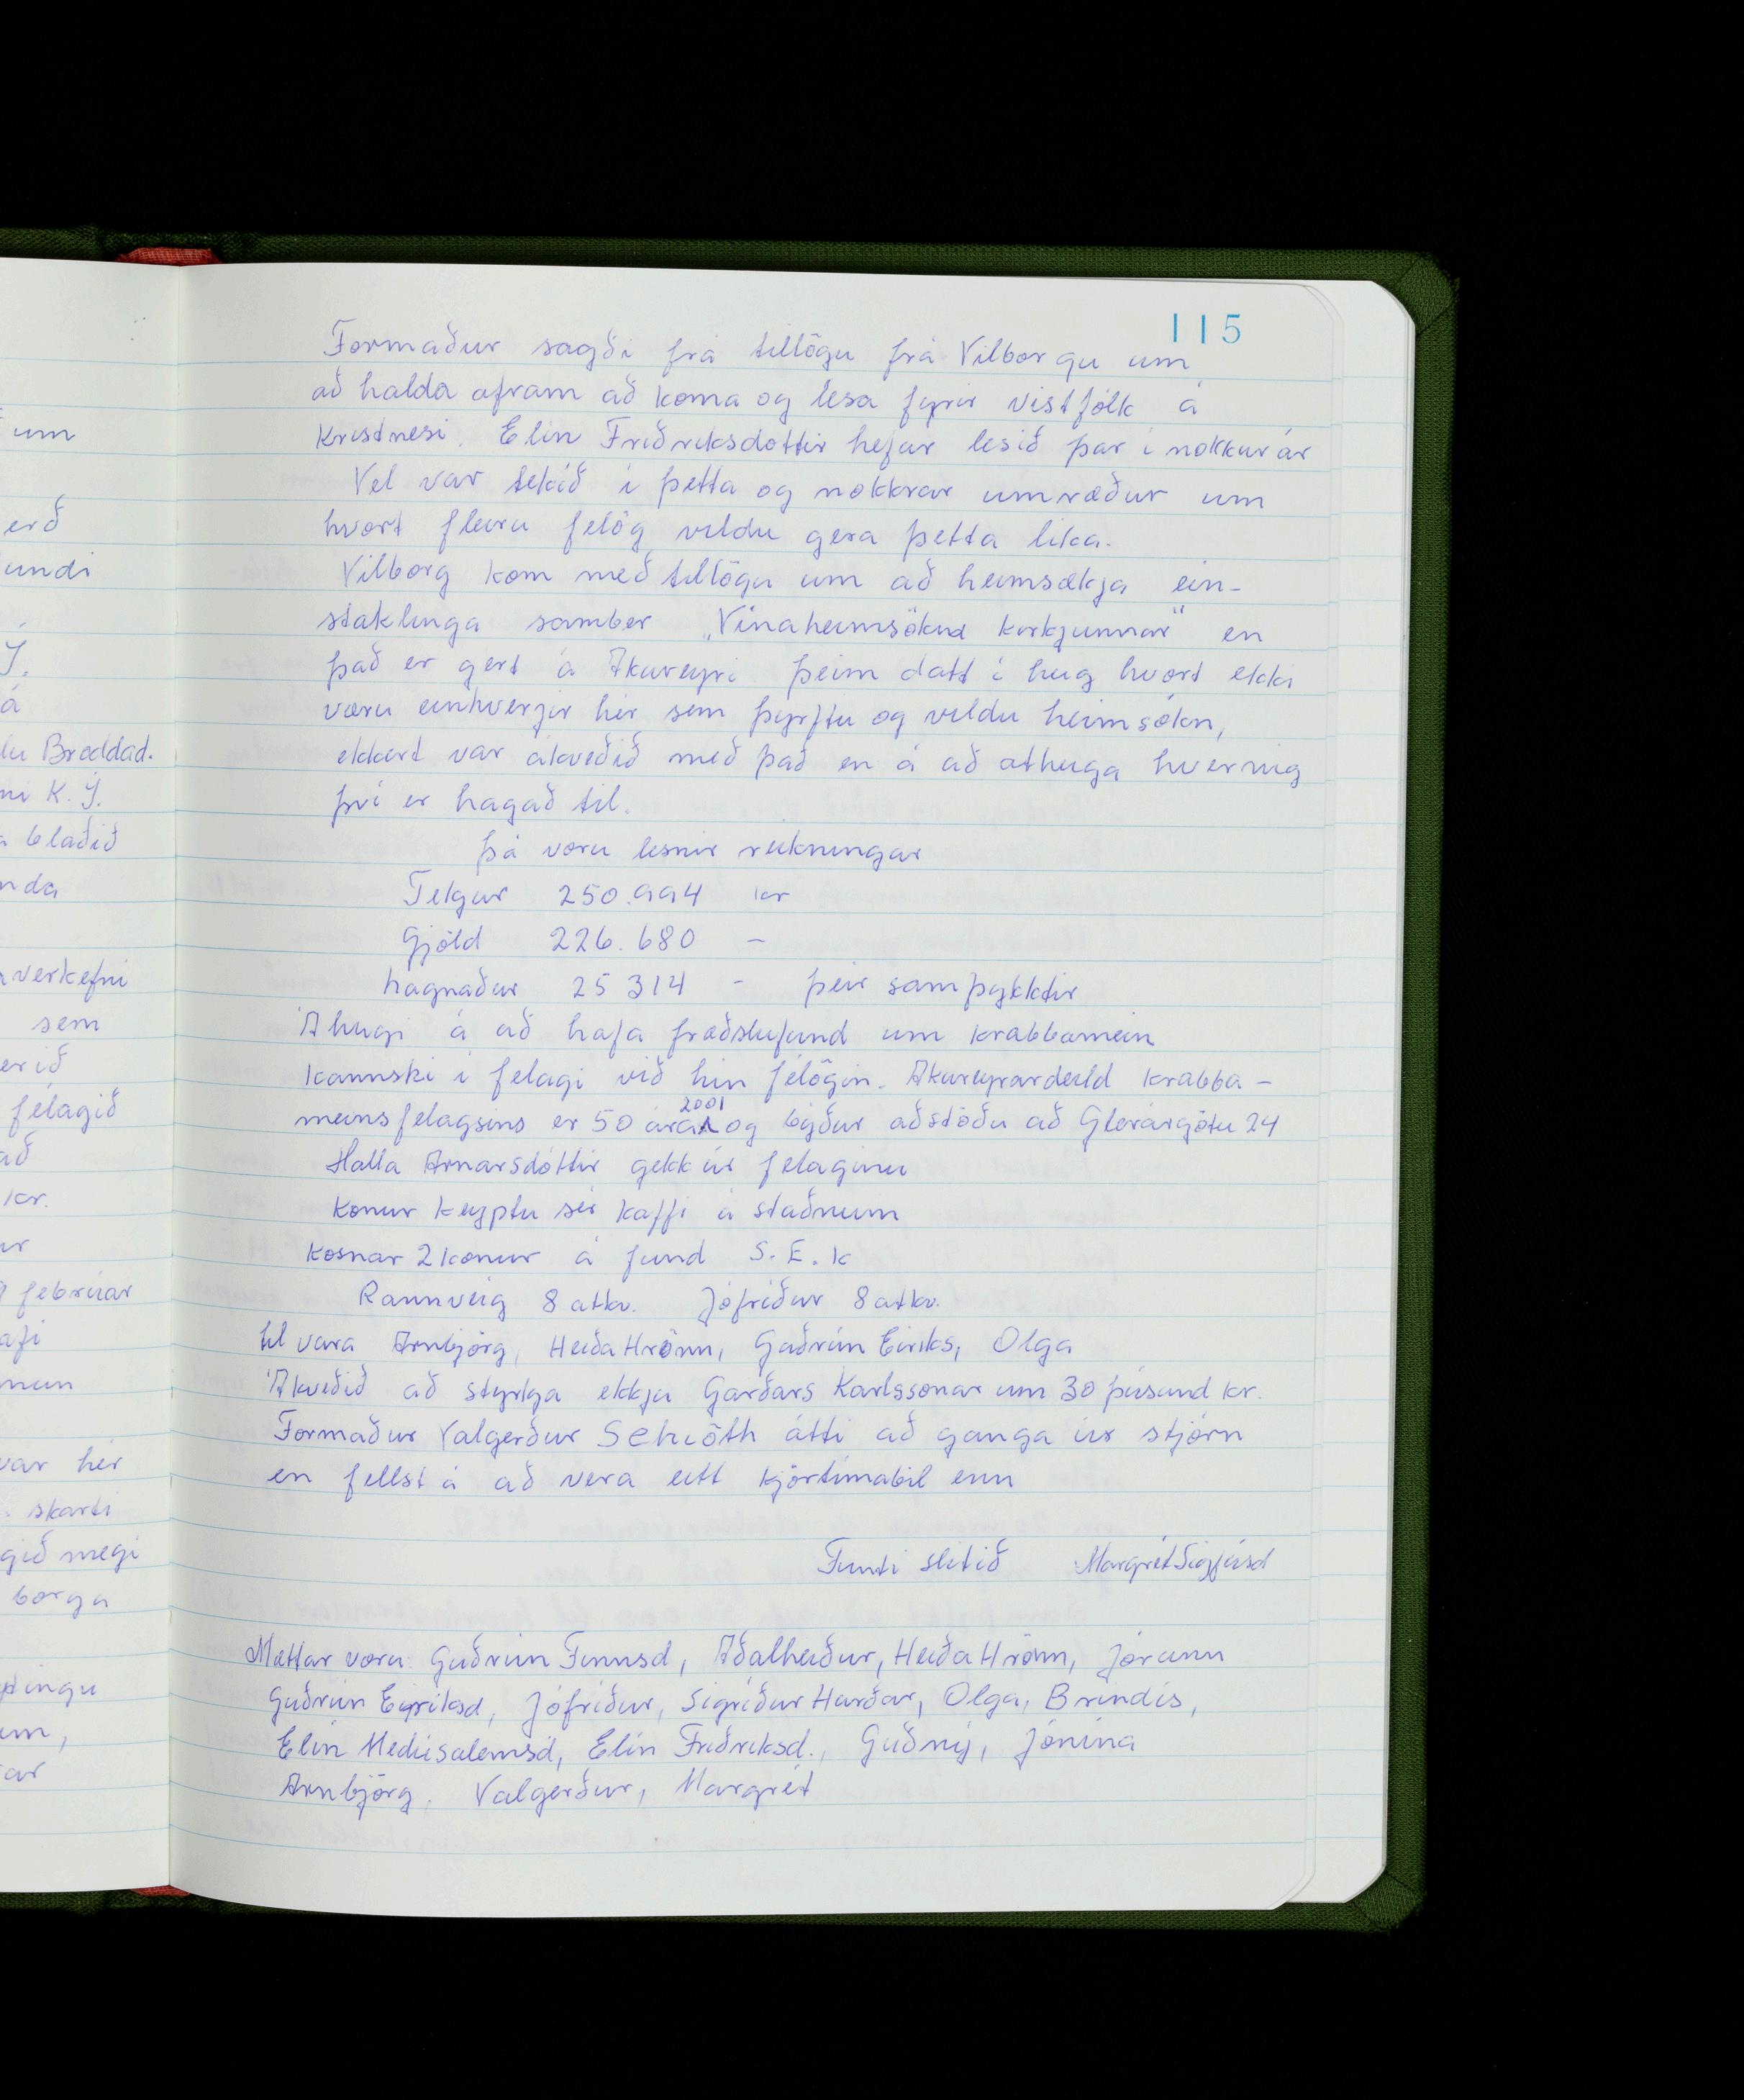 115
Formaður sagði frá tillögu frá Vilborgu um
að halda afram að koma og lesa fyrir vistfólk á
Kristnesi. Elin Friðriksdottir hefur lesið þar i nokkur ár
Vel var tekið i þetta og nokkrar umræður um
hvort fleiru felög vildu gera þetta lika.
Vilborg kom með tillögu um að heimsækja ein-
staklinga samber „Vinaheimsóknir kirkjunnar" en
það er gert á Akureyri þeim datt i hug hvort ekki
væru einhverjir hér sem þyrftu og vildu heimsókn,
ekkert var ákveðið með það en á að athuga hvernig
þvi er hagað til.
þá voru lesnir reikningar
Tekjur 250.994 kr
Gjöld 226.680 –
hagnaður 25 314 – þeir samþykktir
Áhugi á að hafa fræðslufund um krabbamein
kannski i felagi við hin félögin. Akureyrardeild krabba-
meinsfelagsins er 50 ára 2001 og býður aðstöðu að Glerárgötu 24
Halla Arnarsdóttir gekk úr felaginu
Konur keyptu sér kaffi á staðnum
kosnar 2 konur á fund S.E.K
Rannveig 8 atkv. Jófríður 8 atkv.
til vara Arnbjörg, Heiða Hrönn, Guðrún Eiriks, Olga
Ákveðið að styrkja ekkju Garðars Karlssonar um 30 þúsund kr.
Formaður Valgerður Schiöth átti að ganga úr stjórn
en fellst á að vera eitt kjörtímabil enn
Funti slitið Margrét Sigfúsd
Mættar voru Guðrún Finnsd, Aðalheiður, Heiða Hrönn, Jórunn
Guðrún Eiriksd, Jófríður, Sigríður Harðar, Olga, Brindís,
Elín Medúsalemsd, Elín Friðriksd., Guðný, Jónína
Arnbjörg, Valgerður, Margrét
um
erð
undi
á
Broddad.
K. J.
blaðið
nda
verkefni
sem
erið
félagið
að
kr.
ur
febrúar
var hér
skarti
megi
borga
um,